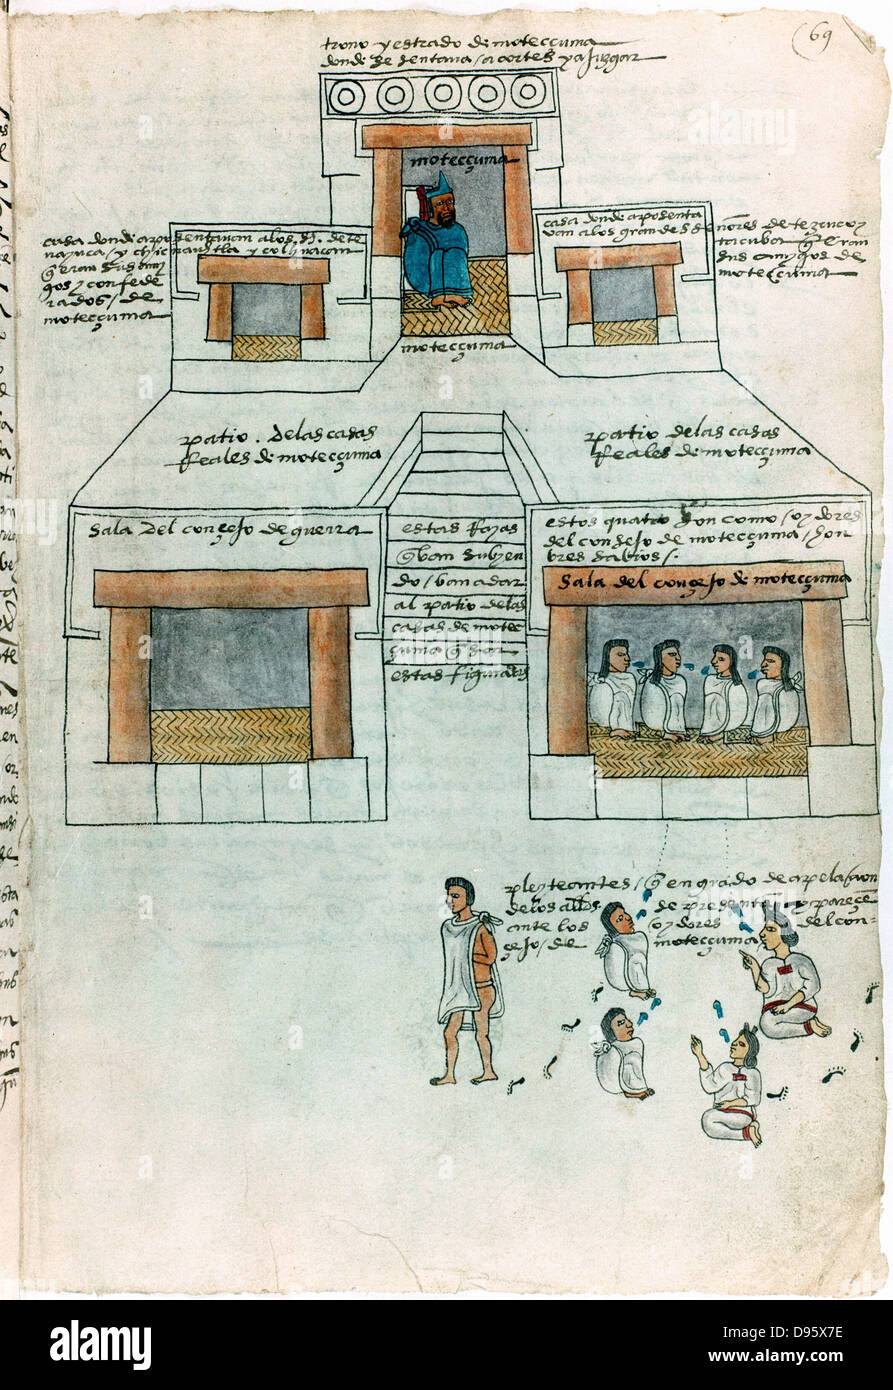 69
trono y estrado de moteccuma
donde se sentava / a cortes y a juzgar
moteccuma
casa donde aposentavan a los s.
nayuca / y chicnauhtla y colhuacan
q̃ eran sus ami
gos y confede
rados / de
moteccuma
casa donde aposenta
van a los grandes s
ñores de tezcuco y
tacuba q̃ eran
sus amigos de
moteccuma
moteccuma
patio . de las casas
Reales de moteccuma
patio de las casas
Reales de moteccuma
sala del conçejo de guerra
estas Rayas
q̃ van subyen
do / van a dar
al patio de las
casas de motec
çuma q̃ son
estas figuradas
estos quatro son como / oydores
del consejo de moteccuma / hon
bres sabios /.
sala del conçejo de moteccuma
pleyteantes / q̃ en grado de apelaçion
de los
de presente
y pareçẽ
ante los
oydores
del con-
çejo / de
moteccuma
alamy
a
alamy stock photo
D95X7E
www.alamy.com